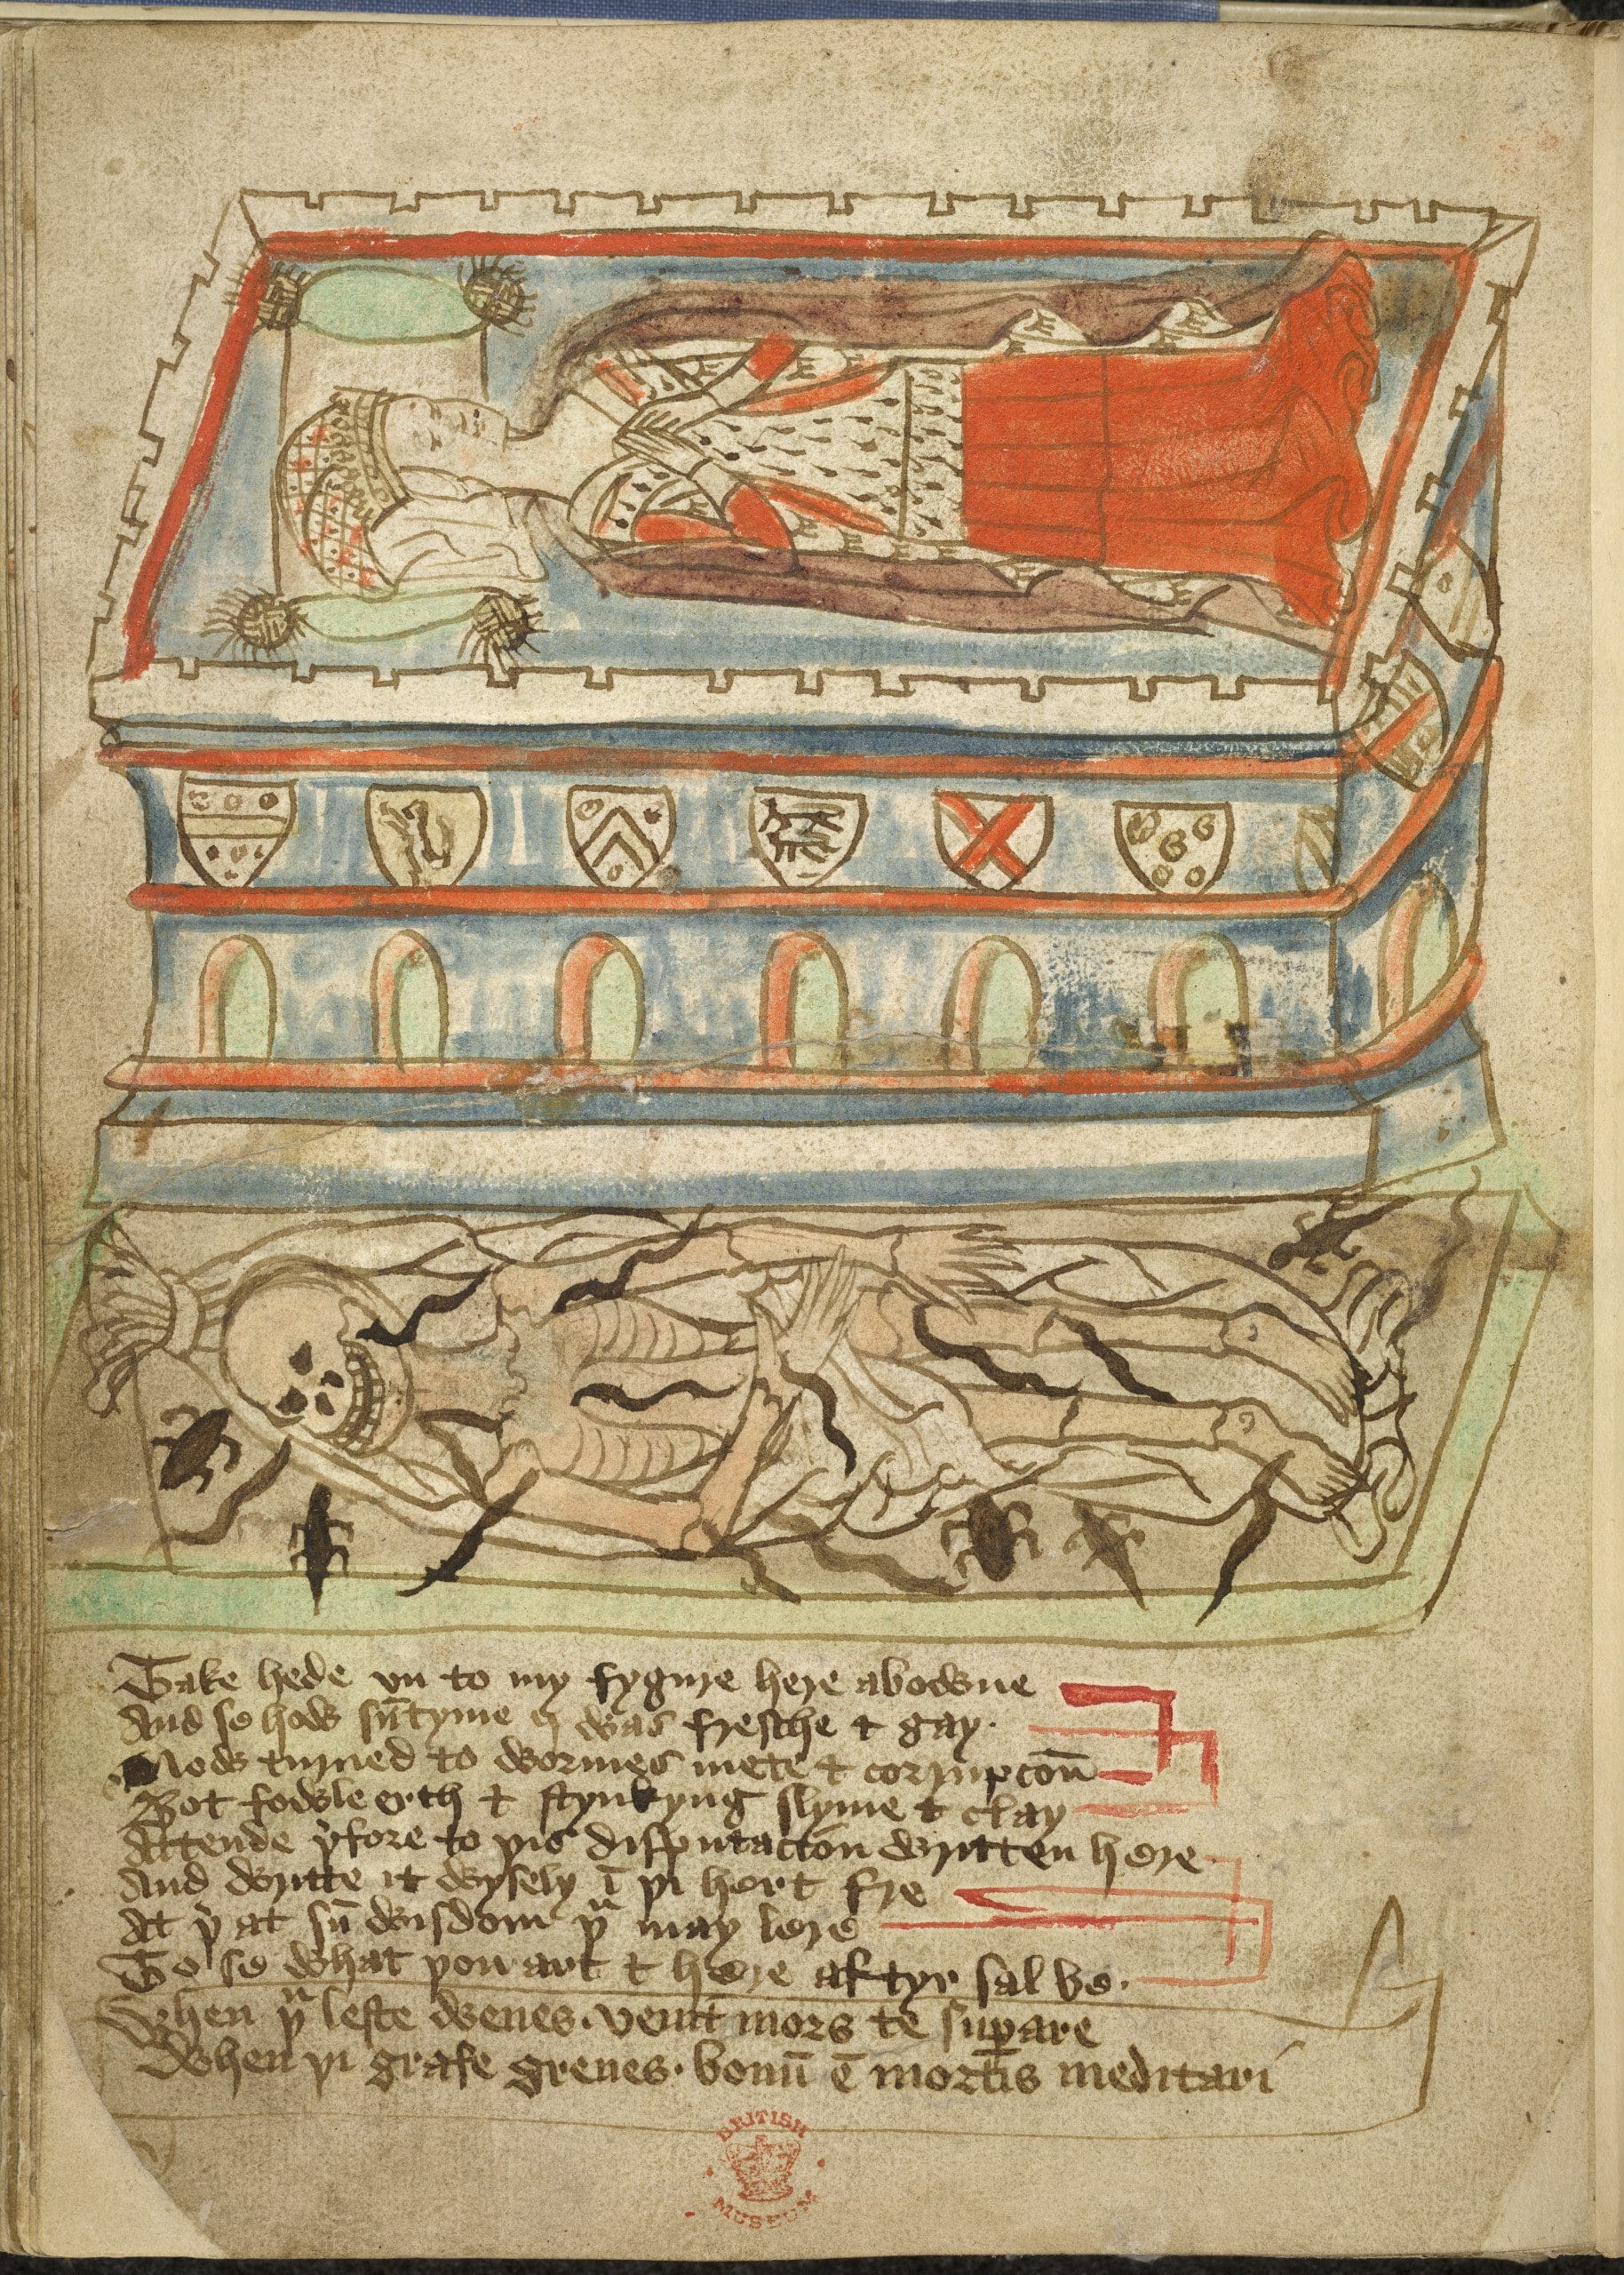 Take hede vn to my fygure here abowne
And se how sū̄tyme I was fresche & gay.
Now turned to wormes mete & corrupcoū̄
Bot fowle erth & stynkyng slyme & clay
Attende þ̓fore to þis disputacion written here
And writte it wysely ī þi hert fre
At þ̓ at sū̄ wisdom þᵘ may lere
To se what þou art & here aftyr sal be.
When þᵘ leste wenes. venit mors te suꝑare
When þi grafe grenes. bonū ē mortis meditari
BRITISH
MUSEUM